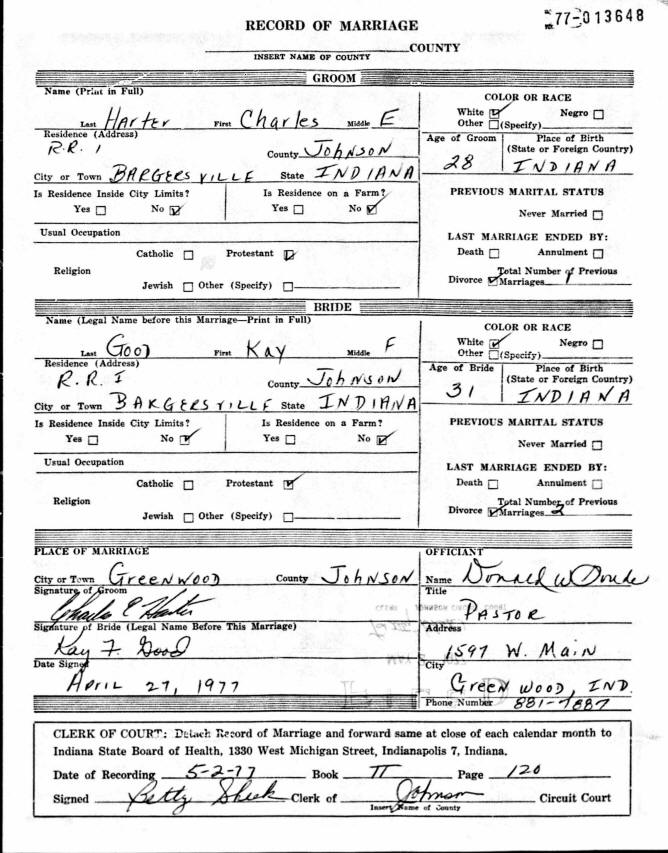 RECORD OF MARRIAGE
77-013648
COUNTY
INSERT NAME OF COUNTY
GROOM
Name (Print in Full)
Last Harter First Charles Middle E
COLOR OR RACE
White ☑ Negro ☐
Other ☐ (Specify)
Residence (Address)
R.R. 1
County Johnson
Age of Groom
28
Place of Birth
(State or Foreign Country)
INDIANA
City or Town BARGERSVILLE State INDIANA
Is Residence Inside City Limits?
Yes ☐ No ☑
Is Residence on a Farm?
Yes ☐ No ☑
PREVIOUS MARITAL STATUS
Never Married ☐
Usual Occupation
LAST MARRIAGE ENDED BY:
Death ☐ Annulment ☐
Religion
Catholic ☐ Protestant ☑
Jewish ☐ Other (Specify) ☐
Divorce ☑ Total Number of Previous
Marriages 1
BRIDE
Name (Legal Name before this Marriage—Print in Full)
Last Good First Kay Middle F
COLOR OR RACE
White ☑ Negro ☐
Other ☐ (Specify)
Residence (Address)
R.R. 1
County Johnson
Age of Bride
31
Place of Birth
(State or Foreign Country)
INDIANA
City or Town BARGERSVILLE State INDIANA
Is Residence Inside City Limits?
Yes ☐ No ☑
Is Residence on a Farm?
Yes ☐ No ☑
PREVIOUS MARITAL STATUS
Never Married ☐
Usual Occupation
LAST MARRIAGE ENDED BY:
Death ☐ Annulment ☐
Religion
Catholic ☐ Protestant ☑
Jewish ☐ Other (Specify) ☐
Divorce ☑ Total Number of Previous
Marriages 2
PLACE OF MARRIAGE
City or Town Greenwood County Johnson
OFFICIANT
Name Donald W
Signature of Groom
Charles E Harter
Title
PASTOR
Signature of Bride (Legal Name Before This Marriage)
Kay F. Good
Address
1597 W. Main
Date Signed
April 27, 1977
City
Greenwood, IND.
Phone Number 881-7887
CLERK OF COURT: Detach Record of Marriage and forward same at close of each calendar month to
Indiana State Board of Health, 1330 West Michigan Street, Indianapolis 7, Indiana.
Date of Recording 5-2-77 Book 77 Page 120
Signed Betty Sheek Clerk of Johnson Circuit Court
Insert Name of County